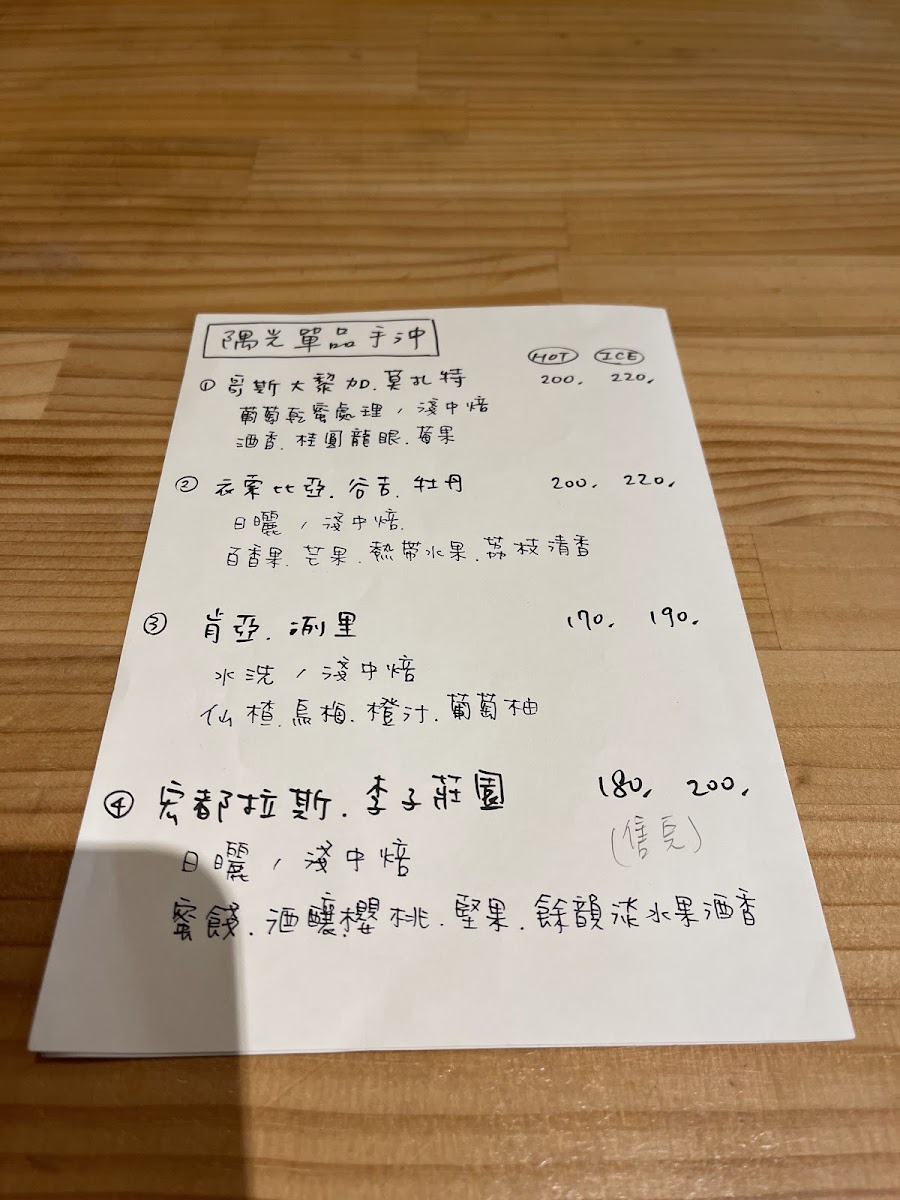 隅光單品手沖
HOT ICE
① 哥斯大黎加.莫扎特 200. 220.
葡萄乾蜜處理 / 淺中焙
酒香.桂圓龍眼.莓果
② 衣索比亞.谷吉.牡丹 200. 220.
日曬 / 淺中焙.
百香果.芒果.熱帶水果.荔枝清香
③ 肯亞.冽里 170. 190.
水洗 / 淺中焙
仙楂.烏梅.橙汁.葡萄柚
④ 宏都拉斯.李子莊園 180. 200.
(售完)
日曬 / 淺中焙
蜜餞.酒釀櫻桃.堅果.餘韻淡水果酒香